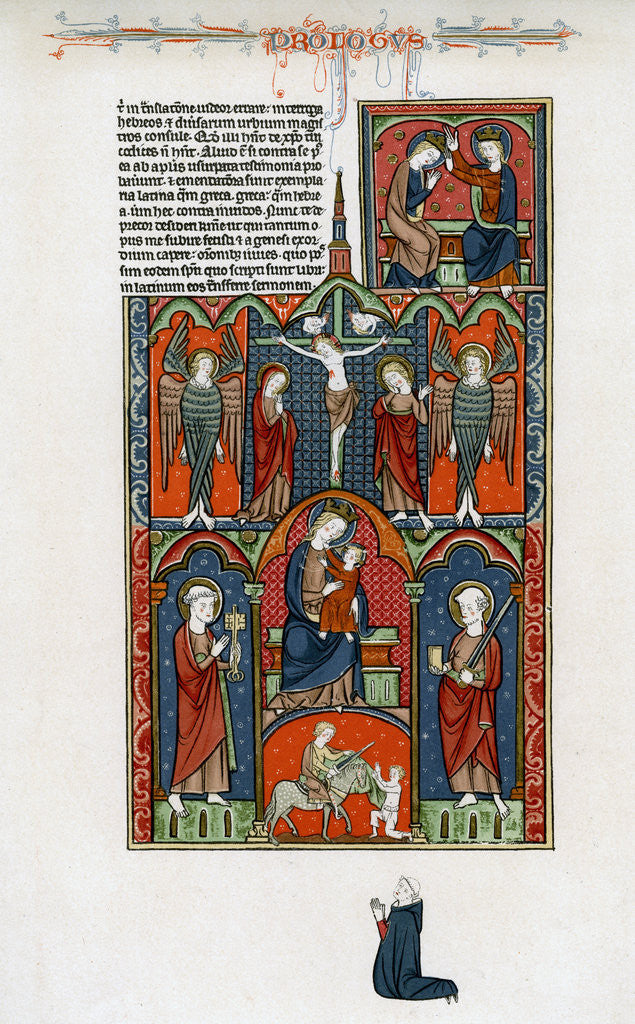 PROLOGVS
t̉ in t̃nslatõne uideor errare: interroga
hebreos. ⁊ diuisarum urbium magiſ
tros conſule. Qd̃ illi hñt de xp̃o tui
codices ñ hñt. Aliud ẽ si contra se p̾
ea ab apl̃is uſurpata teſtimonia pro
bauunt. ⁊ emendatiora sunt exempla
ria latina qm̃ greca. greca: qm̃ hebre
a. um hec contra inuidos. Nunc te de
precor deſideri kñie ut qui tantum o
pus me ſubire feciſti ⁊ a geneſi exor
dium capere: or̃onibȝ iuues. quo poſ
sim eodem sp̃u quo scripti sunt libri
in latinum eos t̃nsferre sermonem.